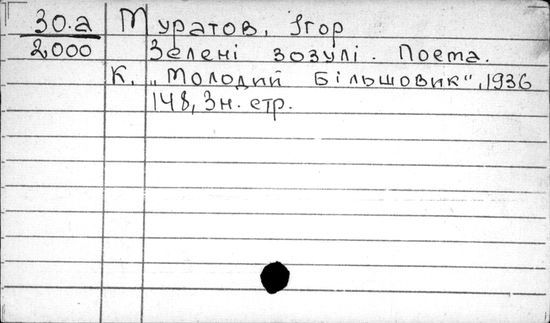 30.а Муратов, Ігор
2000 Зелені зозулі. Поема.
К. „Молодий Більшовик", 1936
148, 3н. стр.